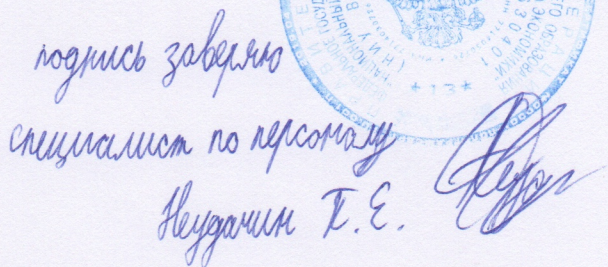 подпись заверяю
специалист по персоналу
Неудачин П. Е.
* 13 *